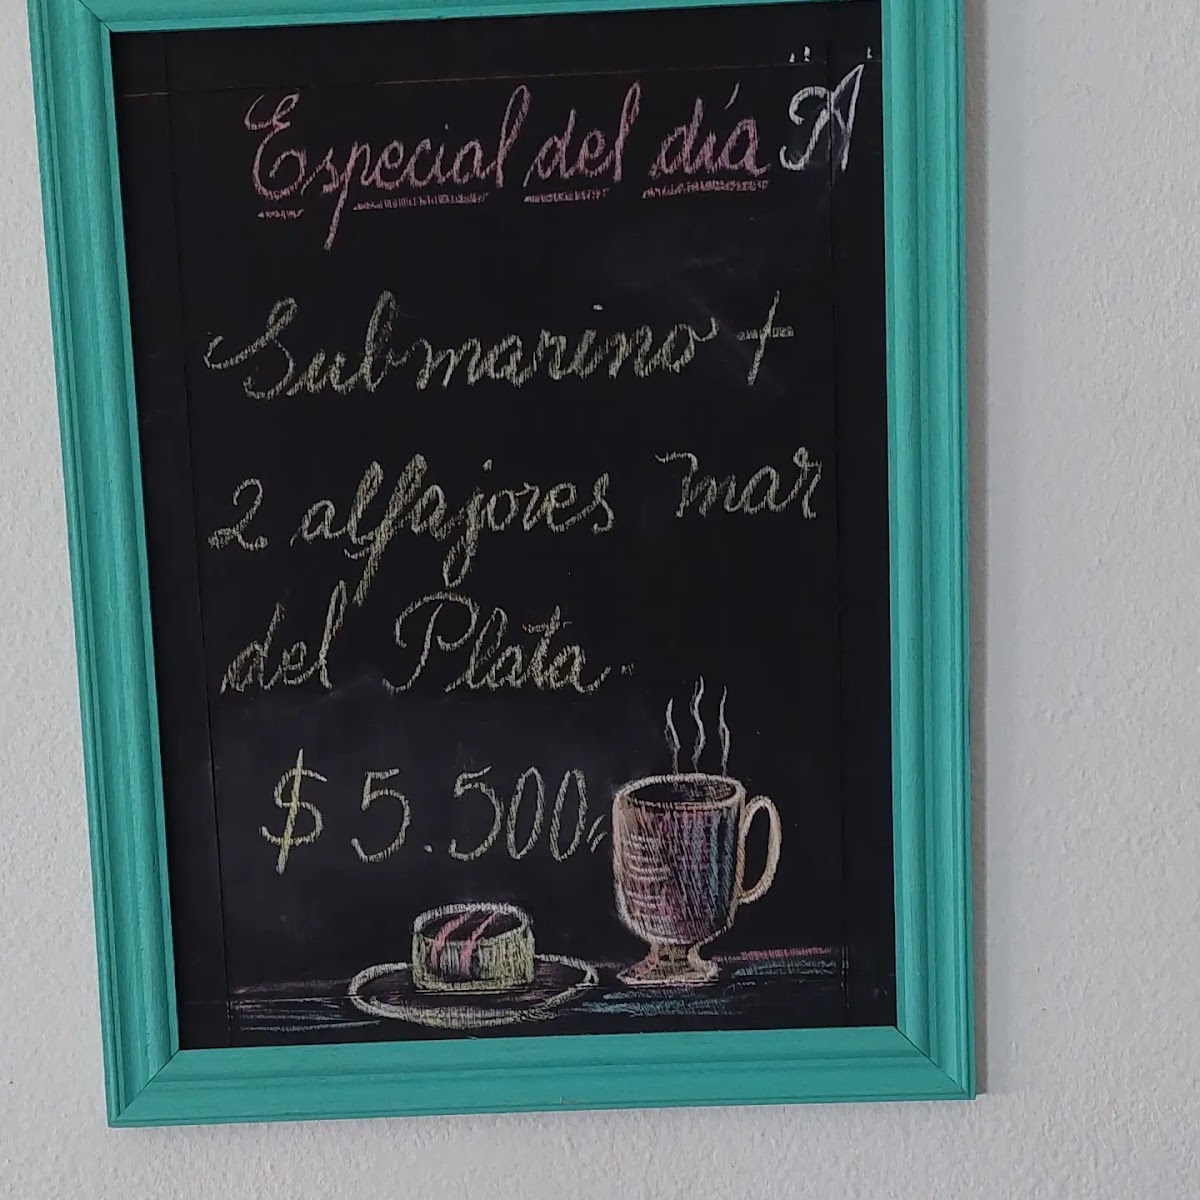 Especial del día
Submarino +
2 alfajores Mar
del Plata
$ 5.500